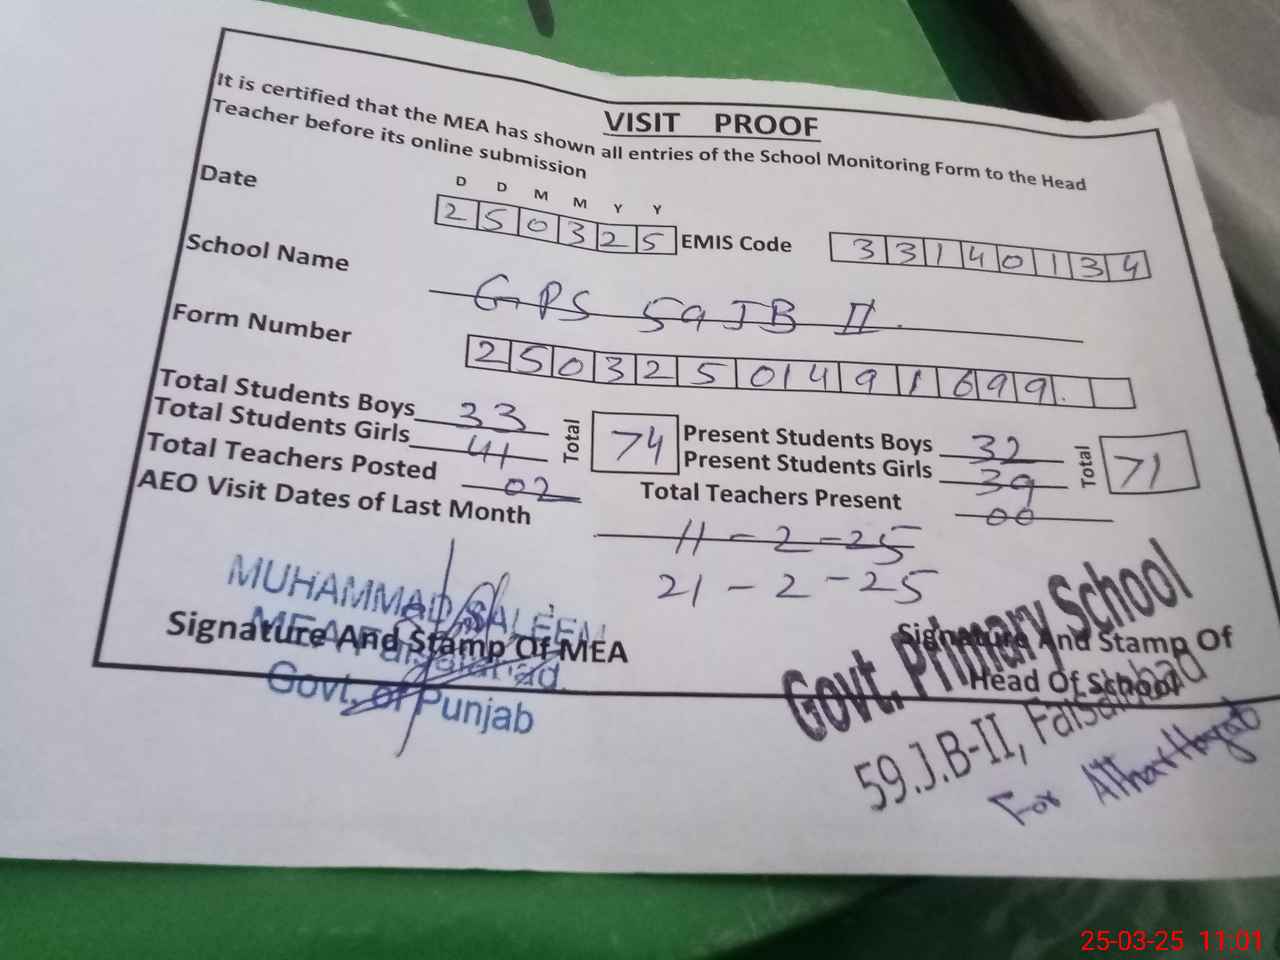 VISIT PROOF
It is certified that the MEA has shown all entries of the School Monitoring Form to the Head
Teacher before its online submission
D D M M Y Y
Date 250325 EMIS Code 33140134
School Name GPS 59 JB II.
Form Number 25032501491699.
Total Students Boys 33 Total 74 Present Students Boys 32 Total 71
Total Students Girls 41 Present Students Girls 39
Total Teachers Posted 02 Total Teachers Present 00
AEO Visit Dates of Last Month 11-2-25
21-2-25
MUHAMMAD SALEEM
MEA Faisalabad.
Govt. of Punjab
Signature And Stamp Of MEA
Signature And Stamp Of
Head Of School
Govt. Primary School
59.J.B-II, Faisalabad
For Athar Hayat
25-03-25 11:01